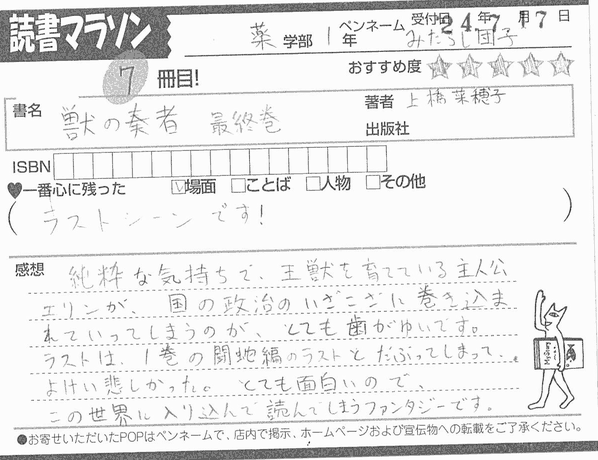 読書マラソン
薬学部 1年 ペンネーム みたらし団子
受付 24年7月17日
7冊目!
おすすめ度 ★★★★★
書名 獣の奏者 最終巻
著者 上橋菜穂子
出版社
ISBN
♥一番心に残った ☑場面 □ことば □人物 □その他
( ラストシーンです! )
感想 純粋な気持ちで、王獣を育てている主人公
エリンが、国の政治のいざこざに巻き込ま
れていってしまうのが、とても歯がゆいです。
ラストは、1巻の闘蛇編のラストとだぶってしまって、
よけい悲しかった。とても面白いので、
この世界に入り込んで読んでしまうファンタジーです。
●お寄せいただいたPOPはペンネームで、店内で掲示、ホームページおよび宣伝物への転載をご了承ください。